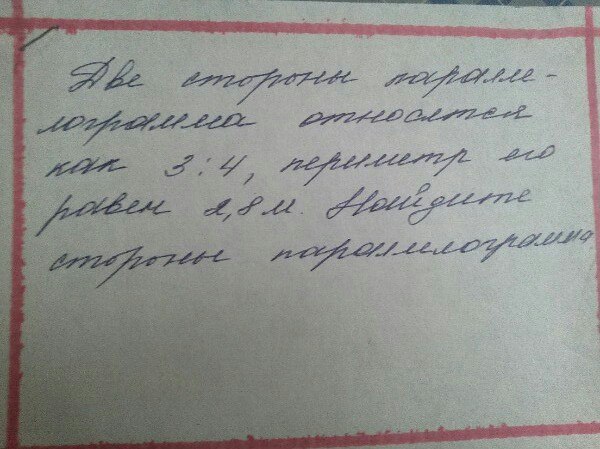 Две стороны паралле-
лограмма относятся
как 3:4, периметр его
равен 2,8 м. Найдите
стороны параллелограмма